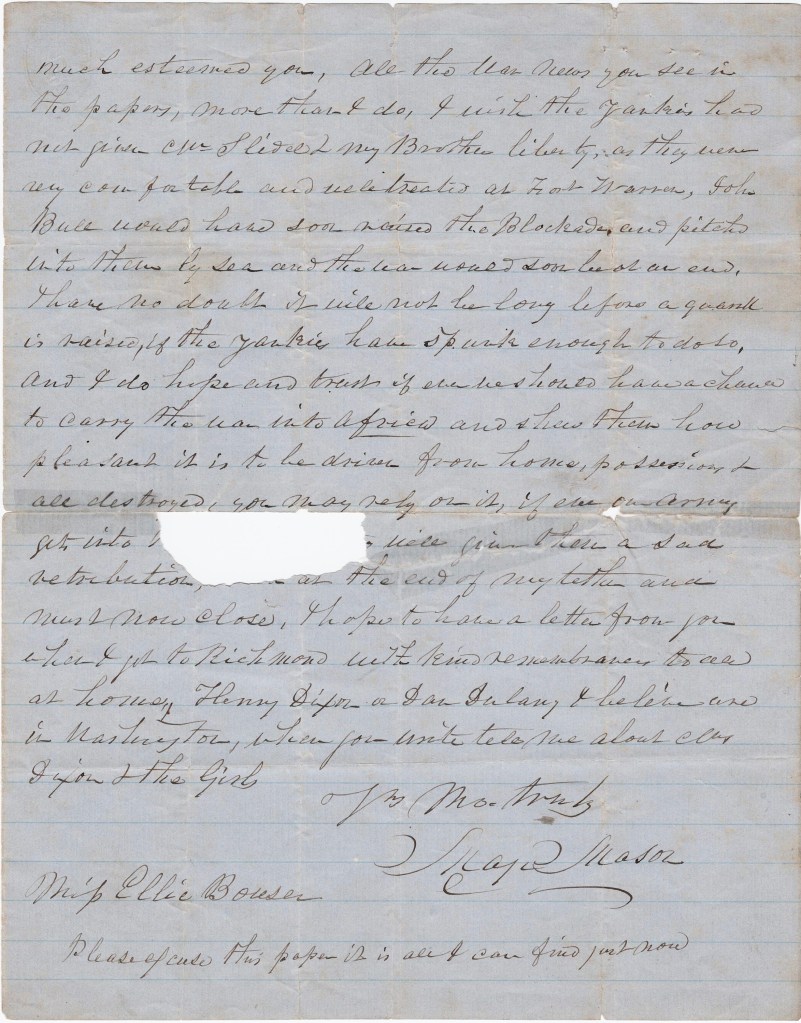 much esteemed you, all the war news you see in
the papers, more than I do, I wish the Yankies had
not given Mr Slidel & my Brother liberty, as they were
very comfortable and well treated at Fort Warren, John
Bull would have soon raised the Blockade, and pitchd
into them by sea and the war would soon be at an end.
I have no doubt it will not be long before a quarrel
is raised, if the Yankies have spunk enough to do so,
And I do hope and trust if ever we should have a chance
to carry the war into Africa and shew them how
pleasant it is to be driven from home, possessions &
all destroyed, you may rely on it, if ever our army
gets into will give them a sad
retribution, at the end of my tether and
must now close, I hope to have a letter from you
when I get to Richmond with kind remembrances to all
at home, Henry Dixon or Dan Dulany I believe are
in Washington, when you write tell me about Mrs
Dixon & the Girls
Yrs Mo. truly
Mason
Miss Ellie Bouser
Please excuse this paper it is all I can find just now